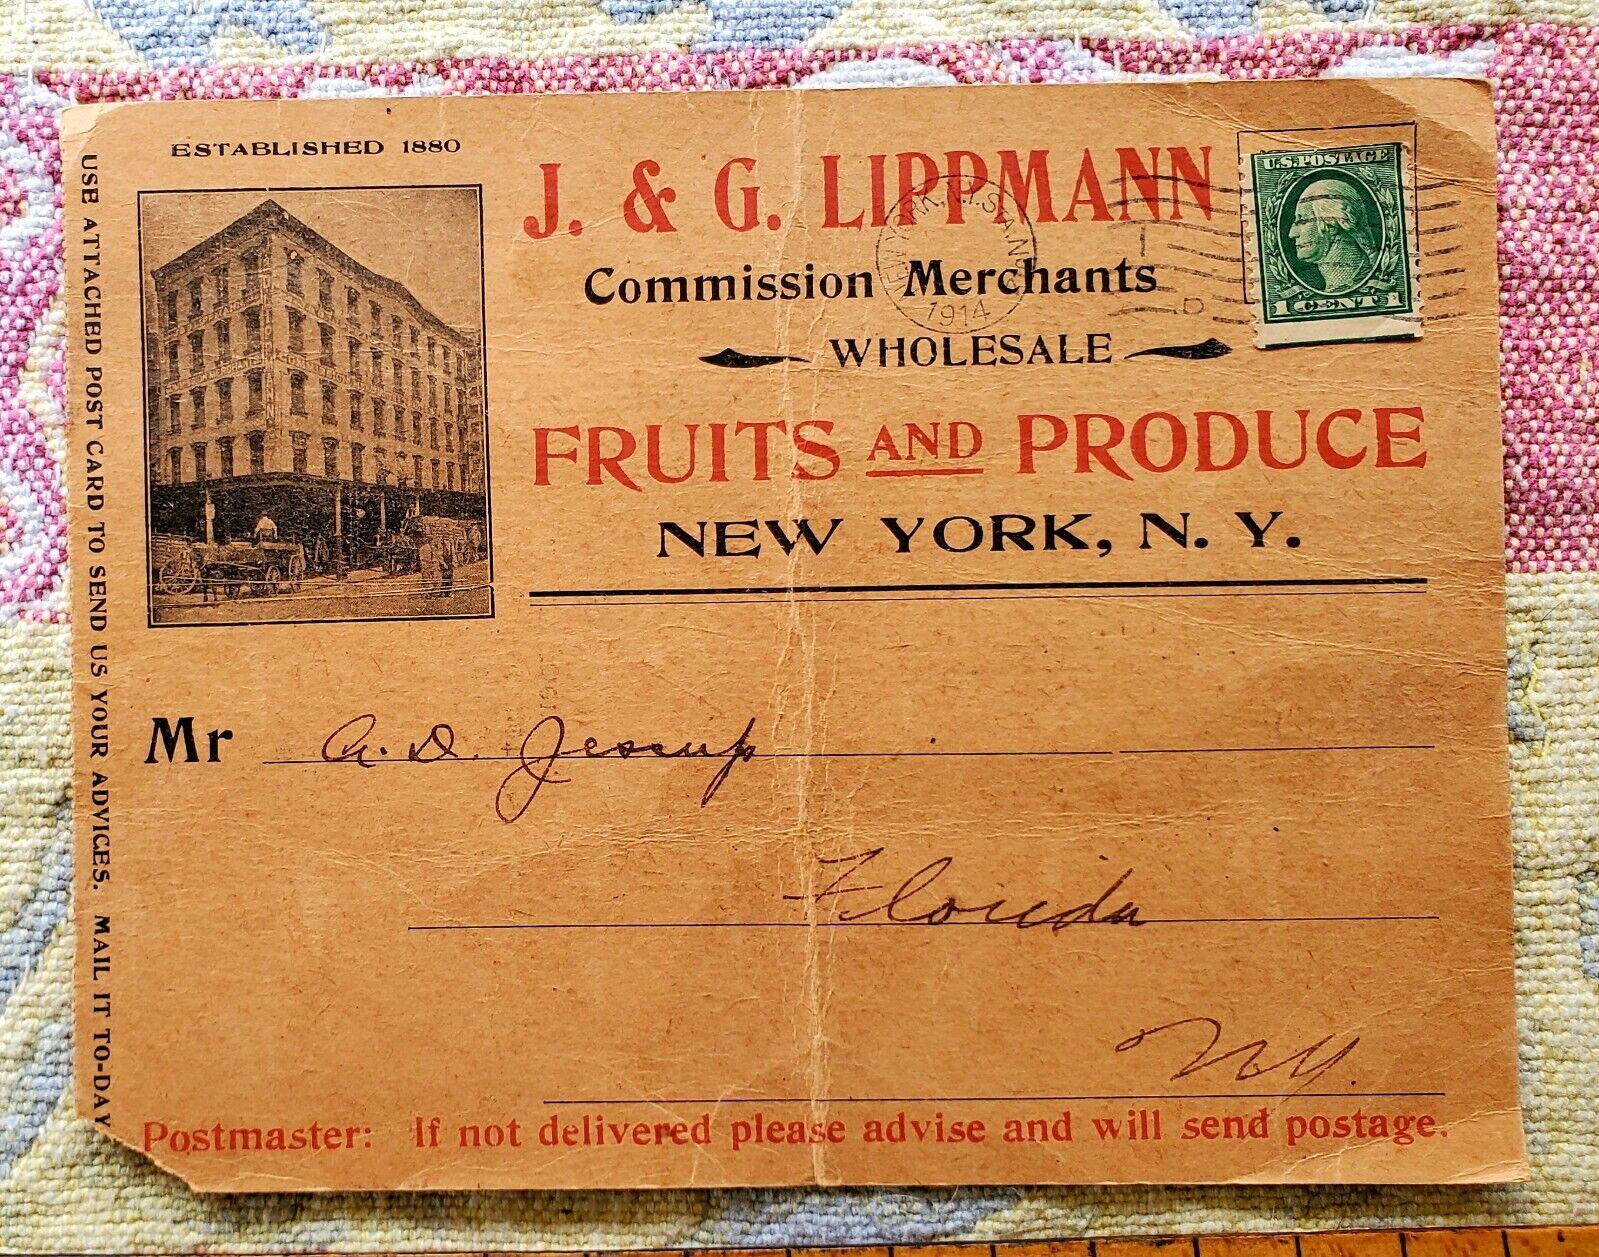 ESTABLISHED 1880
J. & G. LIPPMANN
Commission Merchants
WHOLESALE
FRUITS AND PRODUCE
NEW YORK, N. Y.
YORK, N.Y. STA N
1914
U.S. POSTAGE
1 CENT 1
USE ATTACHED POST CARD TO SEND US YOUR ADVICES. MAIL IT TO-DAY
Mr A. D. Jessup
Florida
N.Y.
Postmaster: If not delivered please advise and will send postage.